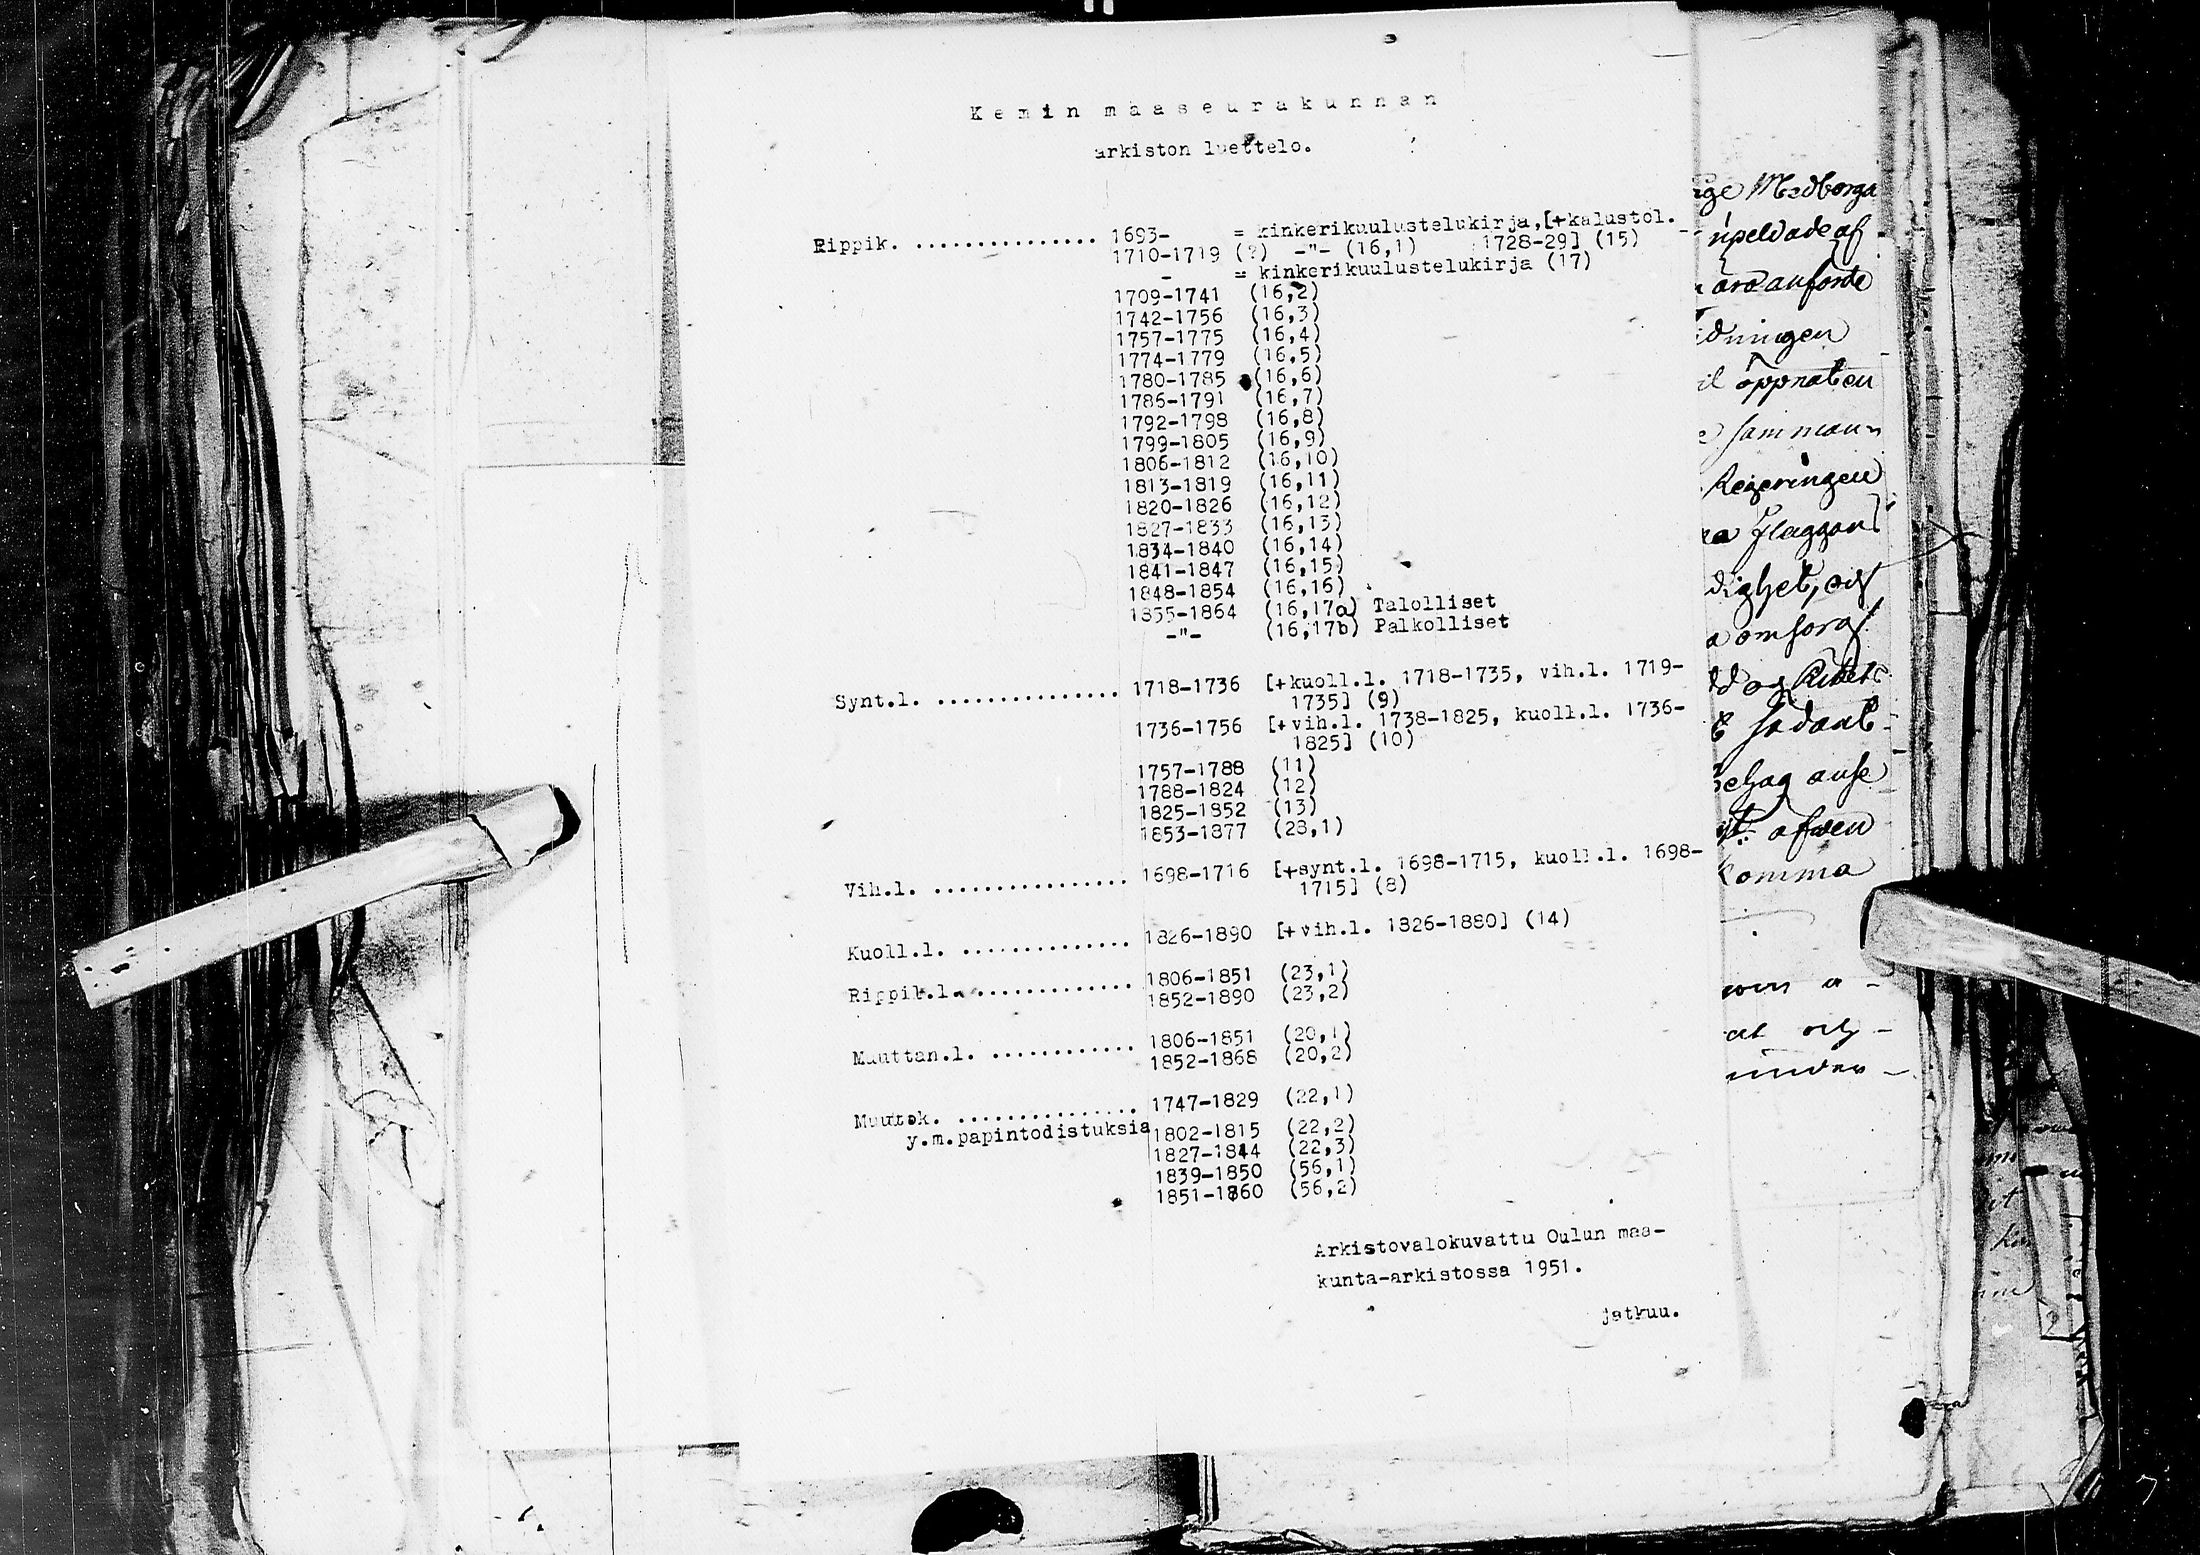 Kemin maaseurakunnan
arkiston luettelo.
Rippik. ............... 1693- = kinkerikuulustelukirja,[+kalustol.
1710-1719 (?) -"- (16,1) 1728-29] (15)
- = kinkerikuulustelukirja (17)
1709-1741 (16,2)
1742-1756 (16,3)
1757-1775 (16,4)
1774-1779 (16,5)
1780-1785 (16,6)
1785-1791 (16,7)
1792-1798 (16,8)
1799-1805 (16,9)
1806-1812 (16,10)
1813-1819 (16,11)
1820-1826 (16,12)
1827-1833 (16,13)
1834-1840 (16,14)
1841-1847 (16,15)
1848-1854 (16,16)
1855-1864 (16,17a) Talolliset
-"- (16,17b) Palkolliset
Synt.l. ............... 1718-1736 [+kuoll.l. 1718-1735, vih.l. 1719-
1735] (9)
1736-1756 [+vih.l. 1738-1825, kuoll.l. 1736-
1825] (10)
1757-1788 (11)
1788-1824 (12)
1825-1852 (13)
1853-1877 (28,1)
Vih.l. ................ 1698-1716 [+synt.l. 1698-1715, kuoll.l. 1698-
1715] (8)
Kuoll.l. .............. 1826-1890 [+vih.l. 1826-1880] (14)
Rippik.l. ............. 1806-1851 (23,1)
1852-1890 (23,2)
Muuttan.l. ............ 1806-1851 (20,1)
1852-1868 (20,2)
Muutok. ............... 1747-1829 (22,1)
y.m.papintodistuksia 1802-1815 (22,2)
1827-1844 (22,3)
1839-1850 (56,1)
1851-1860 (56,2)
Arkistovalokuvattu Oulun maa-
kunta-arkistossa 1951.
jatkuu.
Medborga
af
anförde
dningen
öppnaten
samman
Regeringen
Flaggan
dighet, och
omsorg
och
sådant
behag anse
afwen
komma
a -
och -
under -